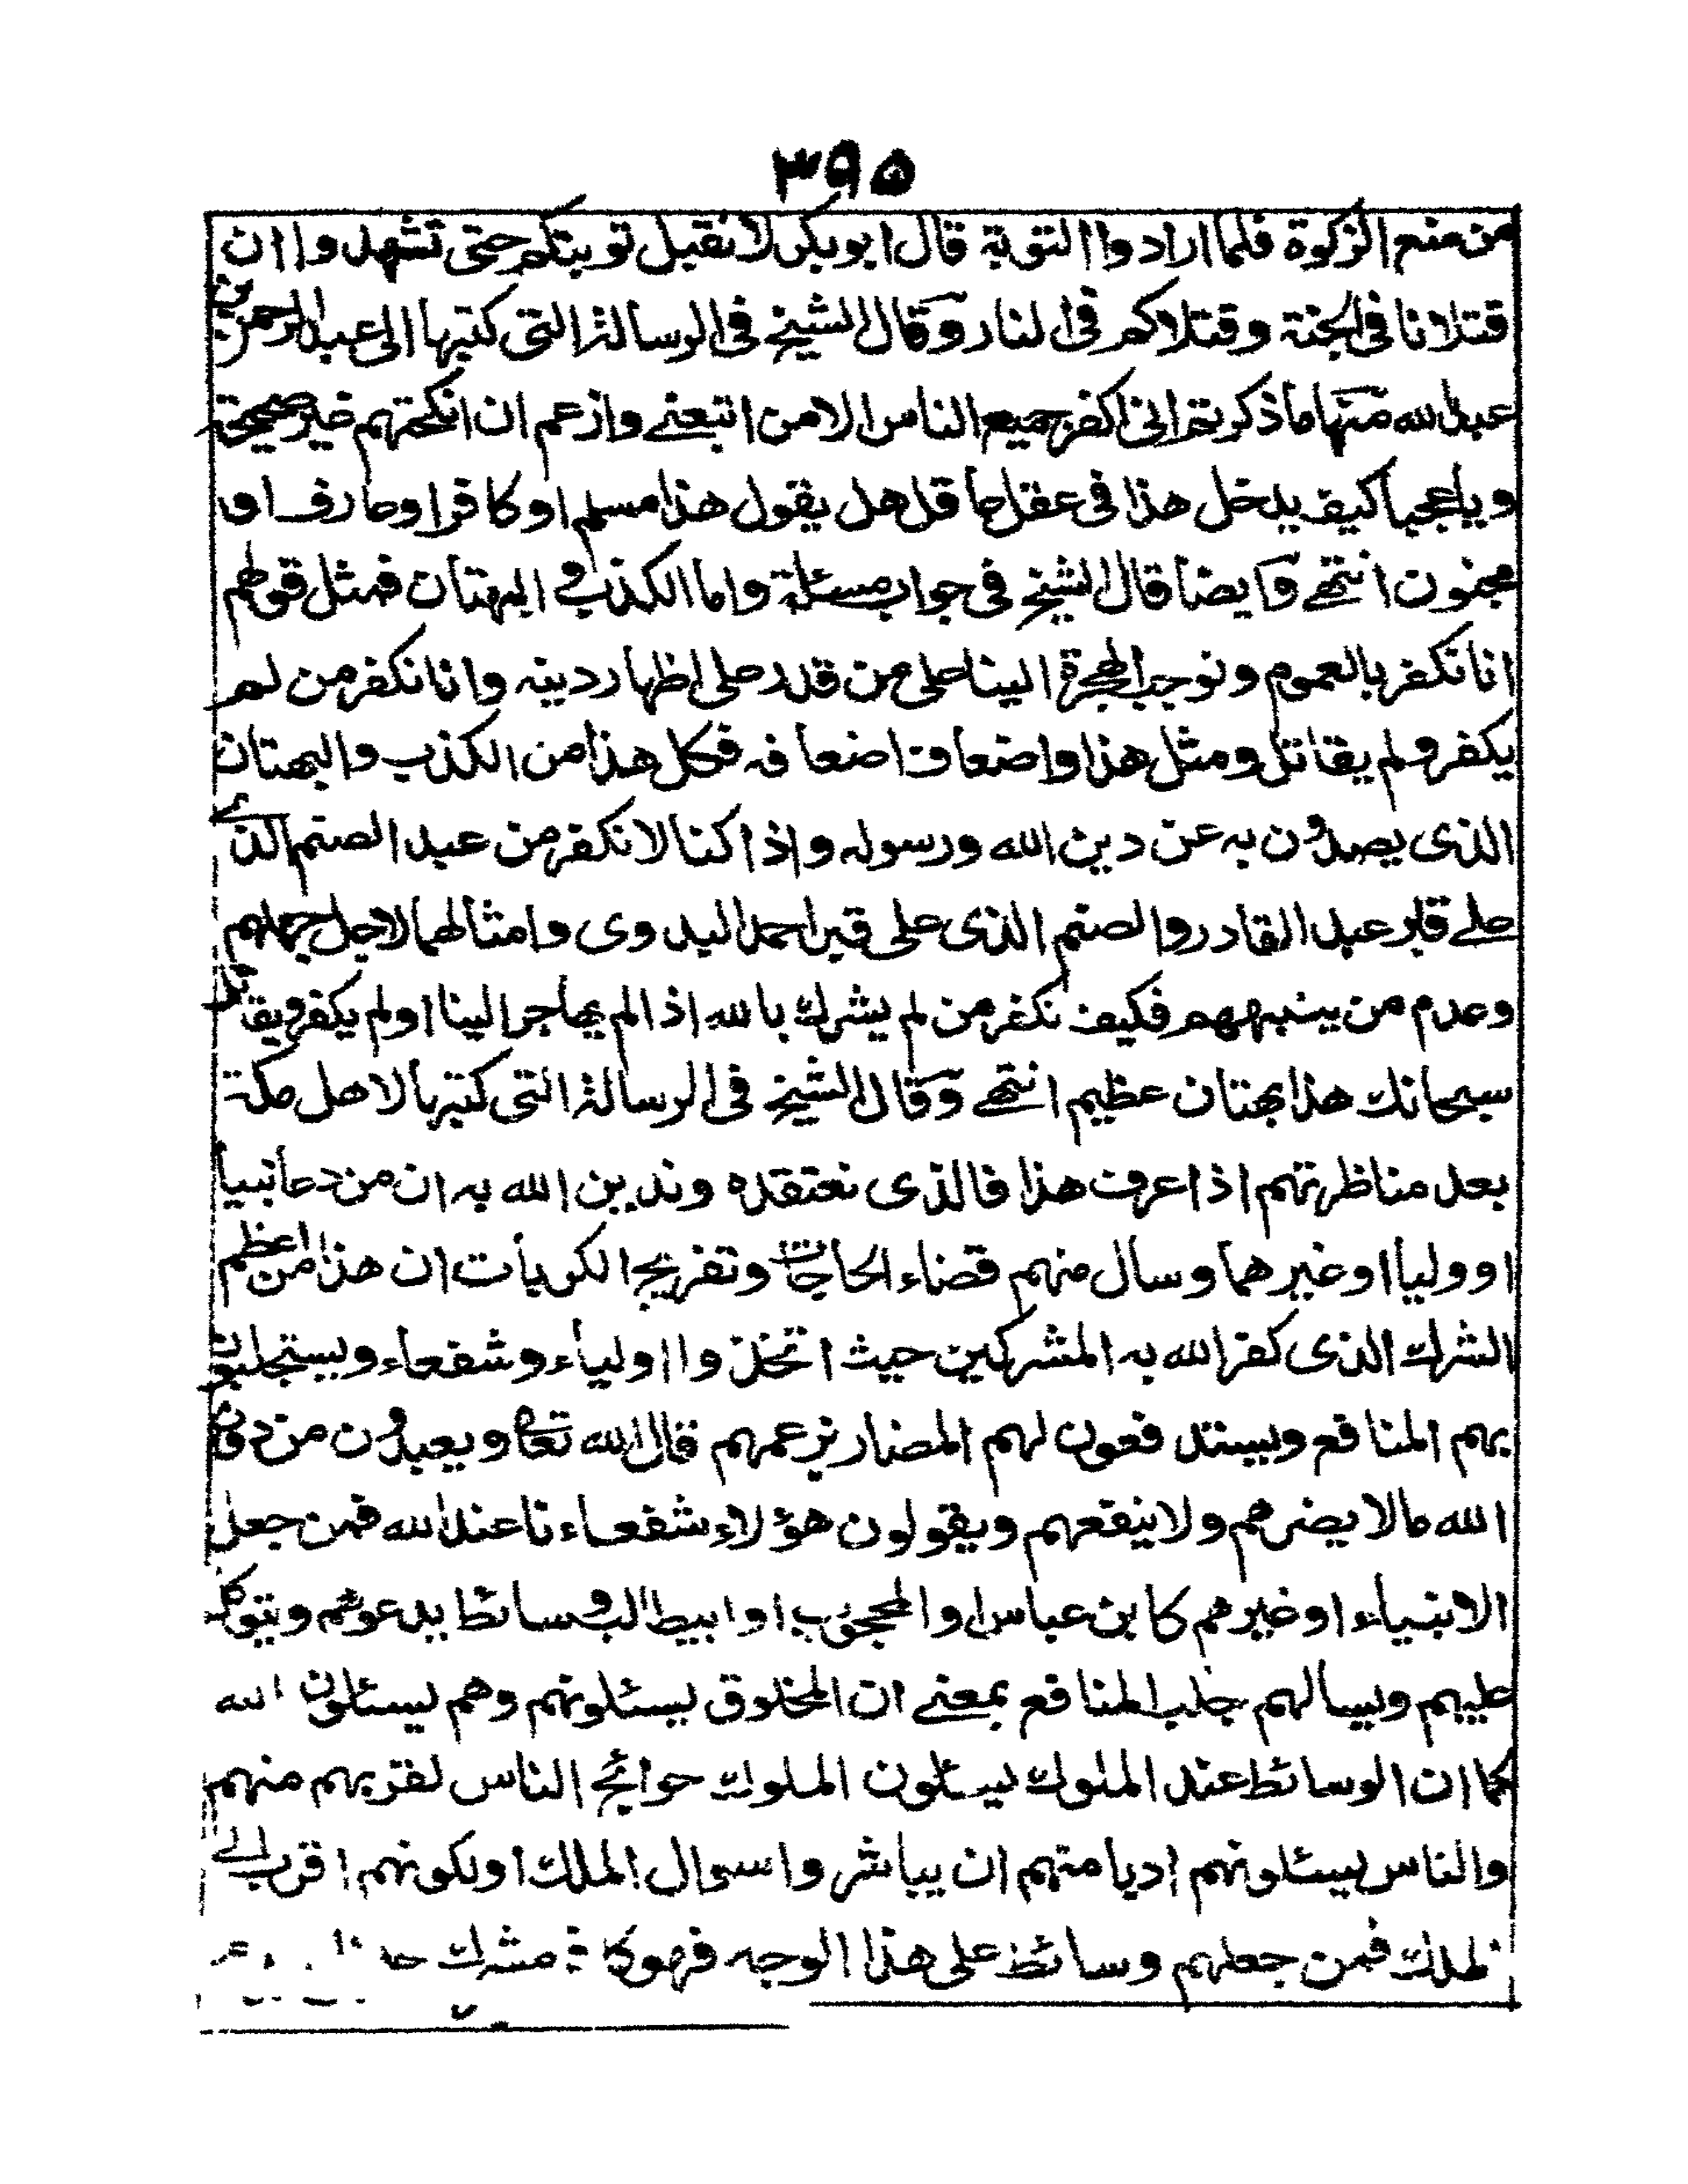 ۳۹۵
من منع الزكوة فلما ارادوا التوبة قال ابو بكر لا نقبل توبتكم حتى تشهدوا ان
قتلانا في الجنة وقتلاكم في النار وقال الشيخ في الرسالة التي كتبها الى عبد الرحمن بن
عبد الله منها ما ذكرتم اني اكفر جميع الناس الا من اتبعني وازعم ان انكحتهم غير صحيحة
ويا عجبا كيف يدخل هذا في عقل عاقل هل يقول هذا مسلم او كافر او عارف او
مجنون انتهى وايضا قال الشيخ في جواب مسئلة واما الكذب والبهتان فمثل قولهم
انا نكفر بالعموم ونوجب الهجرة الينا على من قدر على اظهار دينه وانا نكفر من لم
يكفر ولم يقاتل ومثل هذا واضعاف اضعافه فكل هذا من الكذب والبهتان
الذي يصدون به عن دين الله ورسوله واذا كنا لا نكفر من عبد الصنم الذي
على قبر عبد القادر والصنم الذي على قبر احمد البدوي وامثالهما لاجل جهلهم
وعدم من ينبههم فكيف نكفر من لم يشرك بالله اذا لم يهاجر الينا او لم يكفر ويقاتل
سبحانك هذا بهتان عظيم انتهى وقال الشيخ في الرسالة التي كتبها لاهل مكة
بعد مناظرتهم اذا عرفت هذا فالذي نعتقده وندين الله به ان من دعا نبيا
او وليا او غيرهما وسال منهم قضاء الحاجات وتفريج الكربات ان هذا من اعظم
الشرك الذي كفر الله به المشركين حيث اتخذوا اولياء وشفعاء ويستجلبون
بهم المنافع ويستدفعون لهم المضار بزعمهم قال الله تعا ويعبدون من دون
الله ما لا يضرهم ولا ينفعهم ويقولون هؤلاء شفعاءنا عند الله فمن جعل
الانبياء او غيرهم كابن عباس او المحجوب او ابيطالب وسائط يدعوهم ويتوكل
عليهم ويسالهم جلب المنافع بمعنى ان المخلوق يسئلونهم وهم يسئلون الله
كما ان الوسائط عند الملوك يسئلون الملوك حوائج الناس لقربهم منهم
والناس يسئلونهم ادبا منهم ان يباشروا سوال الملك او لكونهم اقرب الى
الملك فمن جعلهم وسائط على هذا الوجه فهو كافر مشرك